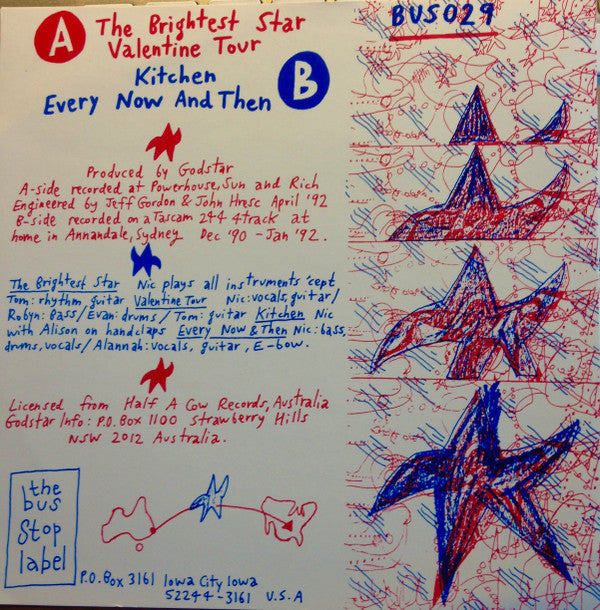 A The Brightest Star
Valentine Tour
Kitchen B
Every Now And Then
BUS029
Produced by Godstar
A-side recorded at Powerhouse, Sun and Rich
Engineered by Jeff Gordon & John Hresc April '92
B-side recorded on a Tascam 244 4track at
home in Annandale, Sydney Dec '90 - Jan '92.
The Brightest Star Nic plays all instruments 'cept
Tom: rhythm guitar Valentine Tour Nic: vocals, guitar/
Robyn: Bass/ Evan: drums/ Tom: guitar Kitchen Nic
with Alison on handclaps Every Now & Then Nic: bass,
drums, vocals/ Alannah: vocals, guitar, E-bow.
Licensed from Half A Cow Records, Australia
Godstar Info: P.O. Box 1100 Strawberry Hills
NSW 2012 Australia.
the
bus
Stop
label
P.O. Box 3161 Iowa City Iowa
52244-3161 U.S.A